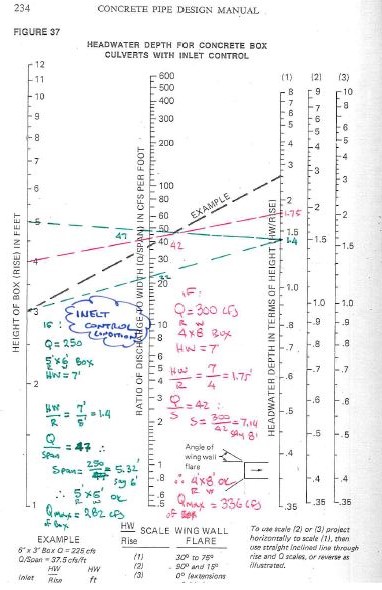 234
CONCRETE PIPE DESIGN MANUAL
FIGURE 37
HEADWATER DEPTH FOR CONCRETE BOX
CULVERTS WITH INLET CONTROL
HEIGHT OF BOX (RISE) IN FEET
12
11
10
9
8
7
6
5
4
3
2
1
RATIO OF DISCHARGE TO WIDTH (Q/SPAN) IN CFS PER FOOT
600
500
400
300
200
100
80
60
50
40
30
20
10
8
6
5
4
3
2
1
.8
.6
.5
EXAMPLE
47
42
22
HEADWATER DEPTH IN TERMS OF HEIGHT (HW/RISE)
(1)
(2)
(3)
8
7
6
5
4
3
2
1.75
1.5
1.4
1.0
.9
.8
.7
.6
.5
.4
.35
9
8
7
6
5
4
3
2
1.5
1.0
.9
.8
.7
.6
.5
.4
.35
10
8
6
5
4
3
2
1.5
1.0
.9
.8
.7
.6
.5
.4
.35
INELT
CONTROL
CONDITION
IF:
Q=250
5'x6' Box
HW=7'
HW/R = 7'/5' = 1.4
Q/Span = 47 ∴
Span = 250/47 = 5.32'
Say 6'
∴ 5'x6' OK
Qmax = 282 cfs
of Box
IF:
Q=300 cfs
R W
4x8 Box
HW=7'
HW/R = 7/4 = 1.75'
Q/S = 42 :
S = 300/42 = 7.14
say 8'
∴ 4'x8' OK
R W
Qmax = 336 cfs
of Box
Angle of
wing wall
flare
EXAMPLE
6' x 3' Box Q = 225 cfs
Q/Span = 37.5 cfs/ft
HW HW
Inlet Rise ft
HW/Rise SCALE WING WALL FLARE
(1) 30° to 75°
(2) 90° and 15°
(3) 0° (extensions
To use scale (2) or (3) project
horizontally to scale (1), then
use straight inclined line through
rise and Q scales, or reverse as
illustrated.